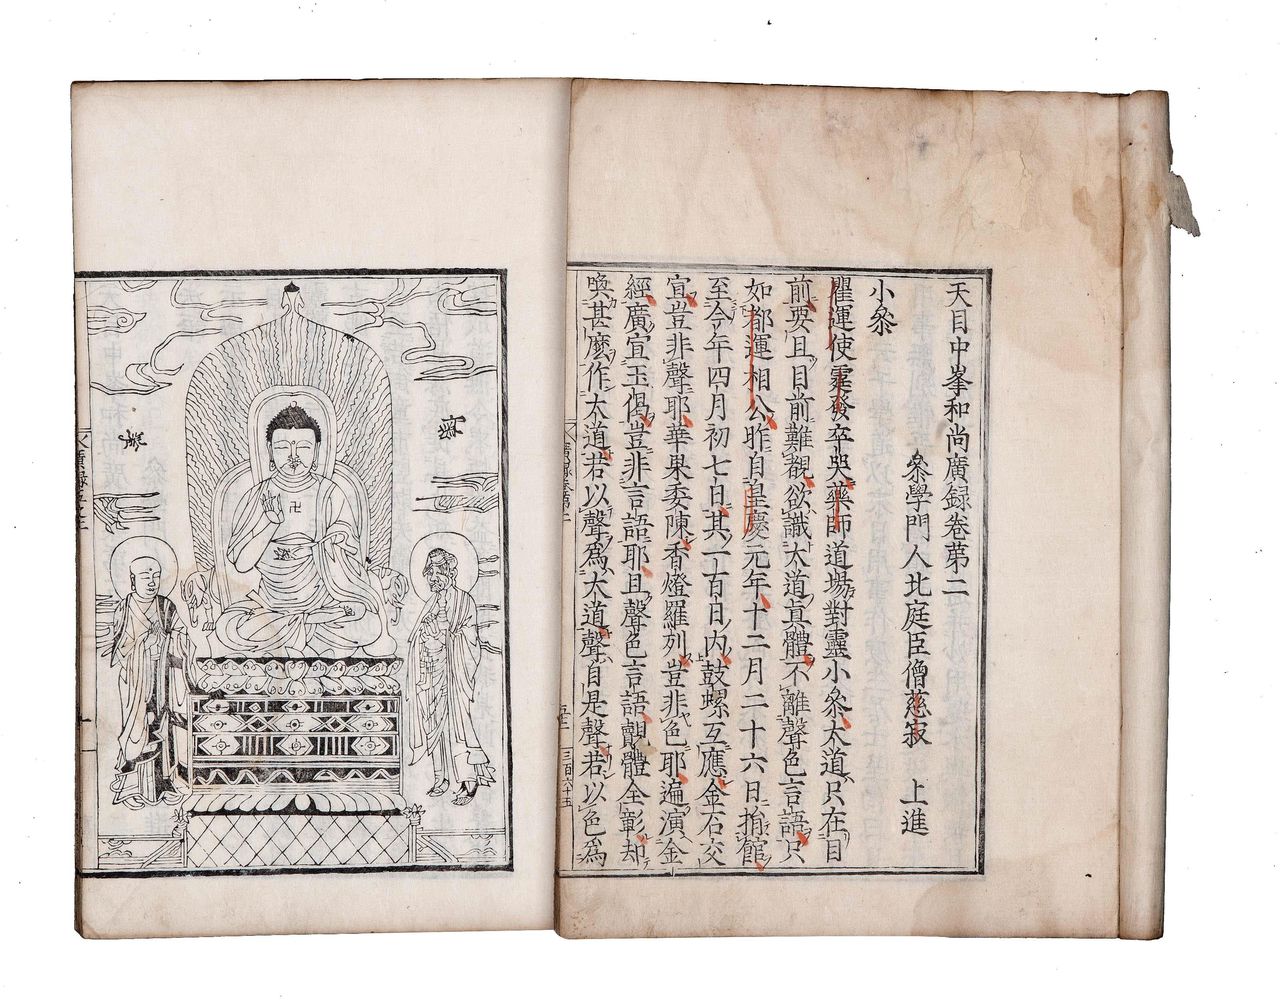 天目中峯和尚廣録卷苐二
叅學門人北庭臣僧慈寂　上進
小叅
瞿運使霆發卒哭藥師道場對靈小叅太道只在目
前要且目前難覩欲識太道真體不離聲色言語只
如都運相公昨自皇慶元年十二月二十六日捐館
至今年四月初七日其一百日内鼓螺互應金石交
宣豈非聲耶華果委陳香燈羅列豈非色耶遍演金
經廣宣玉偈豈非言語耶且聲色言語覿體全彰却
喚甚麽作太道若以聲爲太道聲自是聲若以色爲
三百六十五
卍